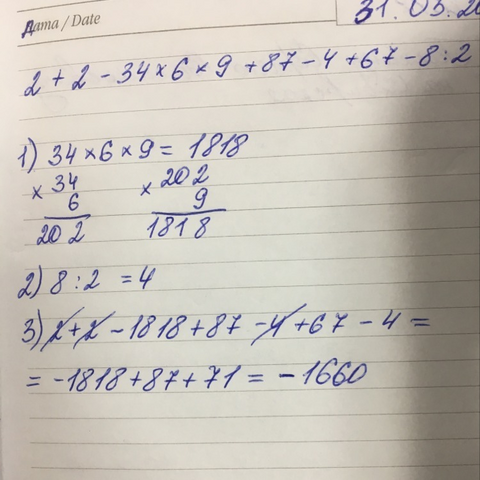 Дата / Date
31.05.20
2 + 2 - 34 × 6 × 9 + 87 - 4 + 67 - 8 : 2
1) 34 × 6 × 9 = 1818
× 34 × 202
6 9
202 1818
2) 8 : 2 = 4
3) 2 + 2 - 1818 + 87 - 4 + 67 - 4 =
= - 1818 + 87 + 71 = - 1660